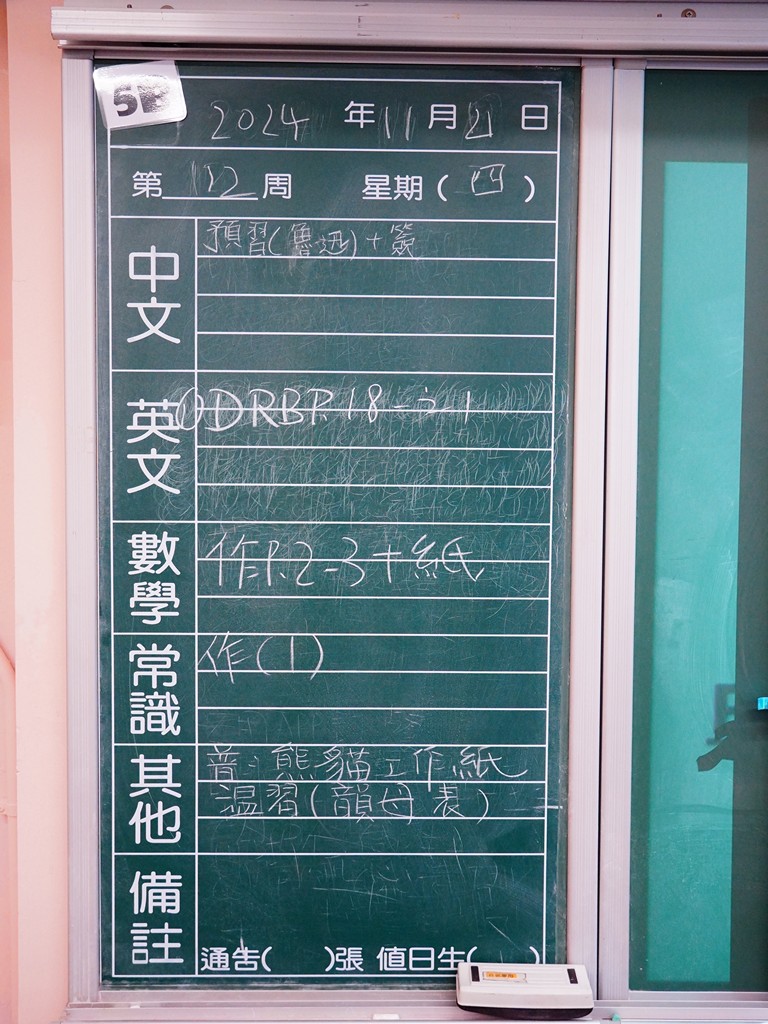 5B
2024 年 11 月 21 日
第 12 周 星期( 四 )
中文 預習(魯迅)+簽
英文 ①DRB P.18-21
數學 作P.2-3+紙
常識 作(1)
其他 普:熊貓工作紙
溫習(韻母表)
備註
通告( )張 值日生( )